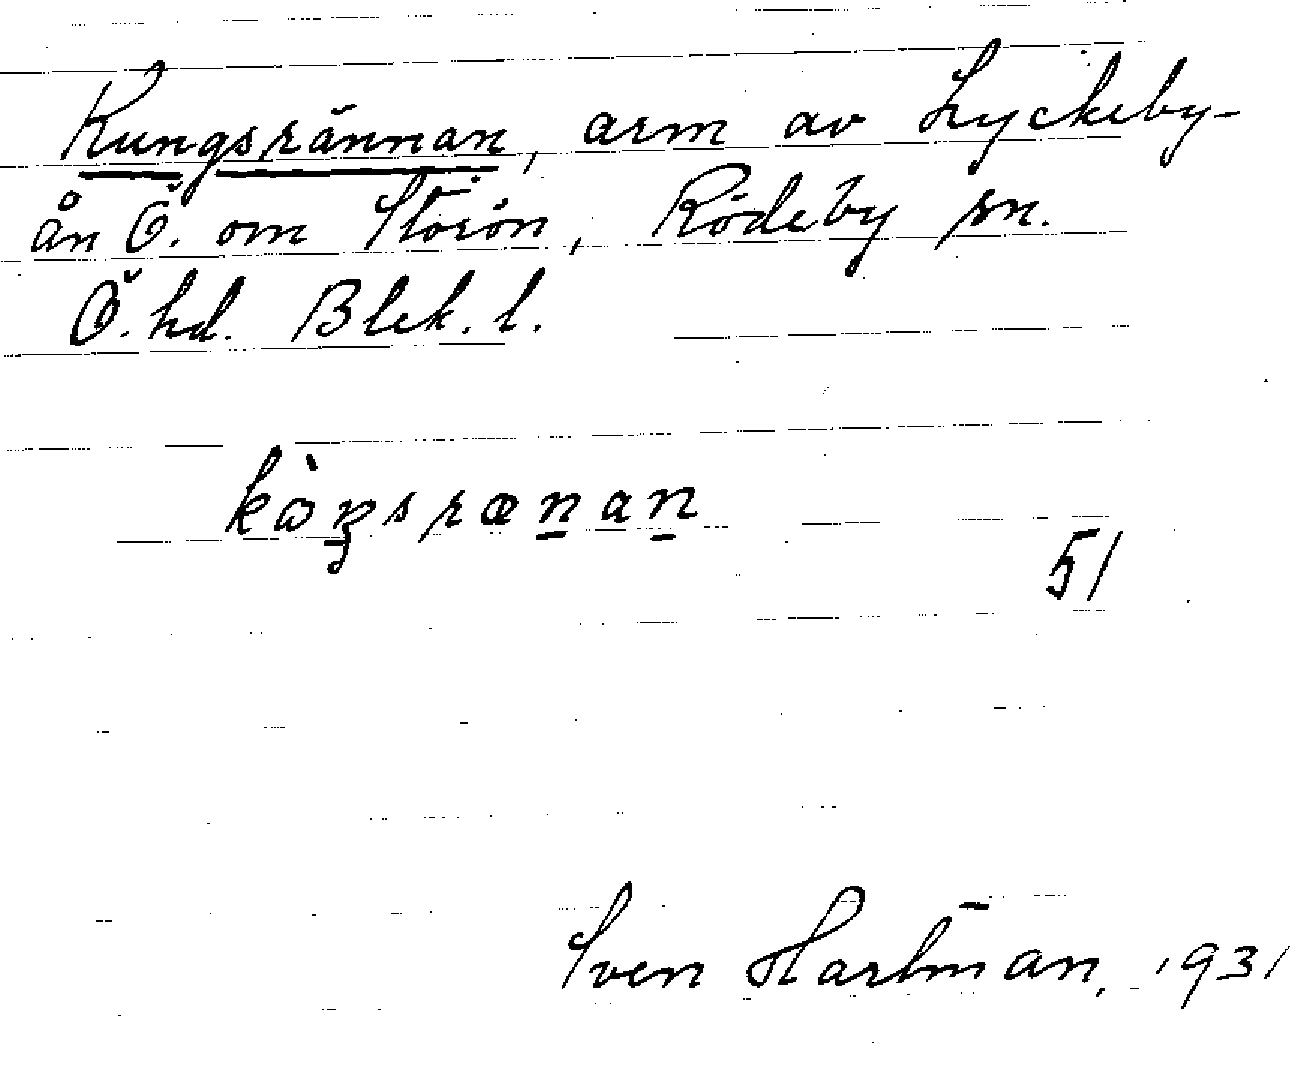 Kungsrännan, arm av Lyckeby-
ån Ö. om Storön, Rödeby sn.
Ö. hd. Blek. l.
51
Sven Hartman, 1931